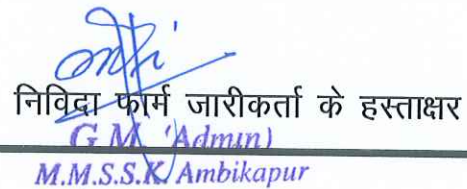 निविदा फार्म जारीकर्ता के हस्ताक्षर
G.M. (Admin)
M.M.S.S.K. Ambikapur